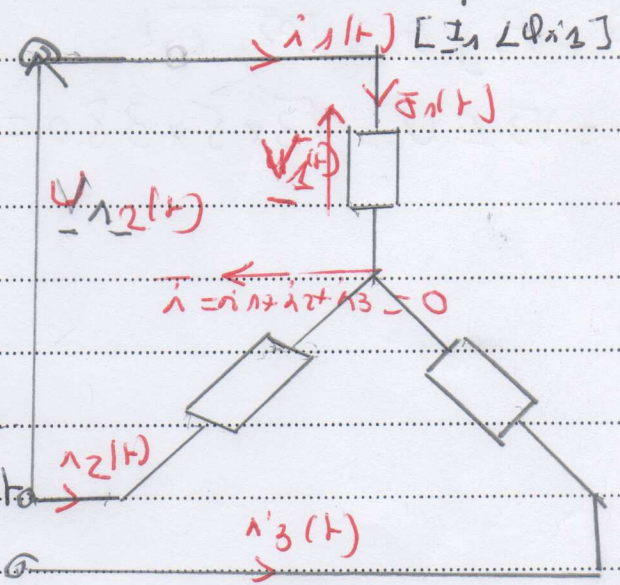 i1(t) [I1 ∠φi1]
J1(t)
V1(t)
U12(t)
i = i1 + i2 + i3 = 0
i2(t)
i3(t)